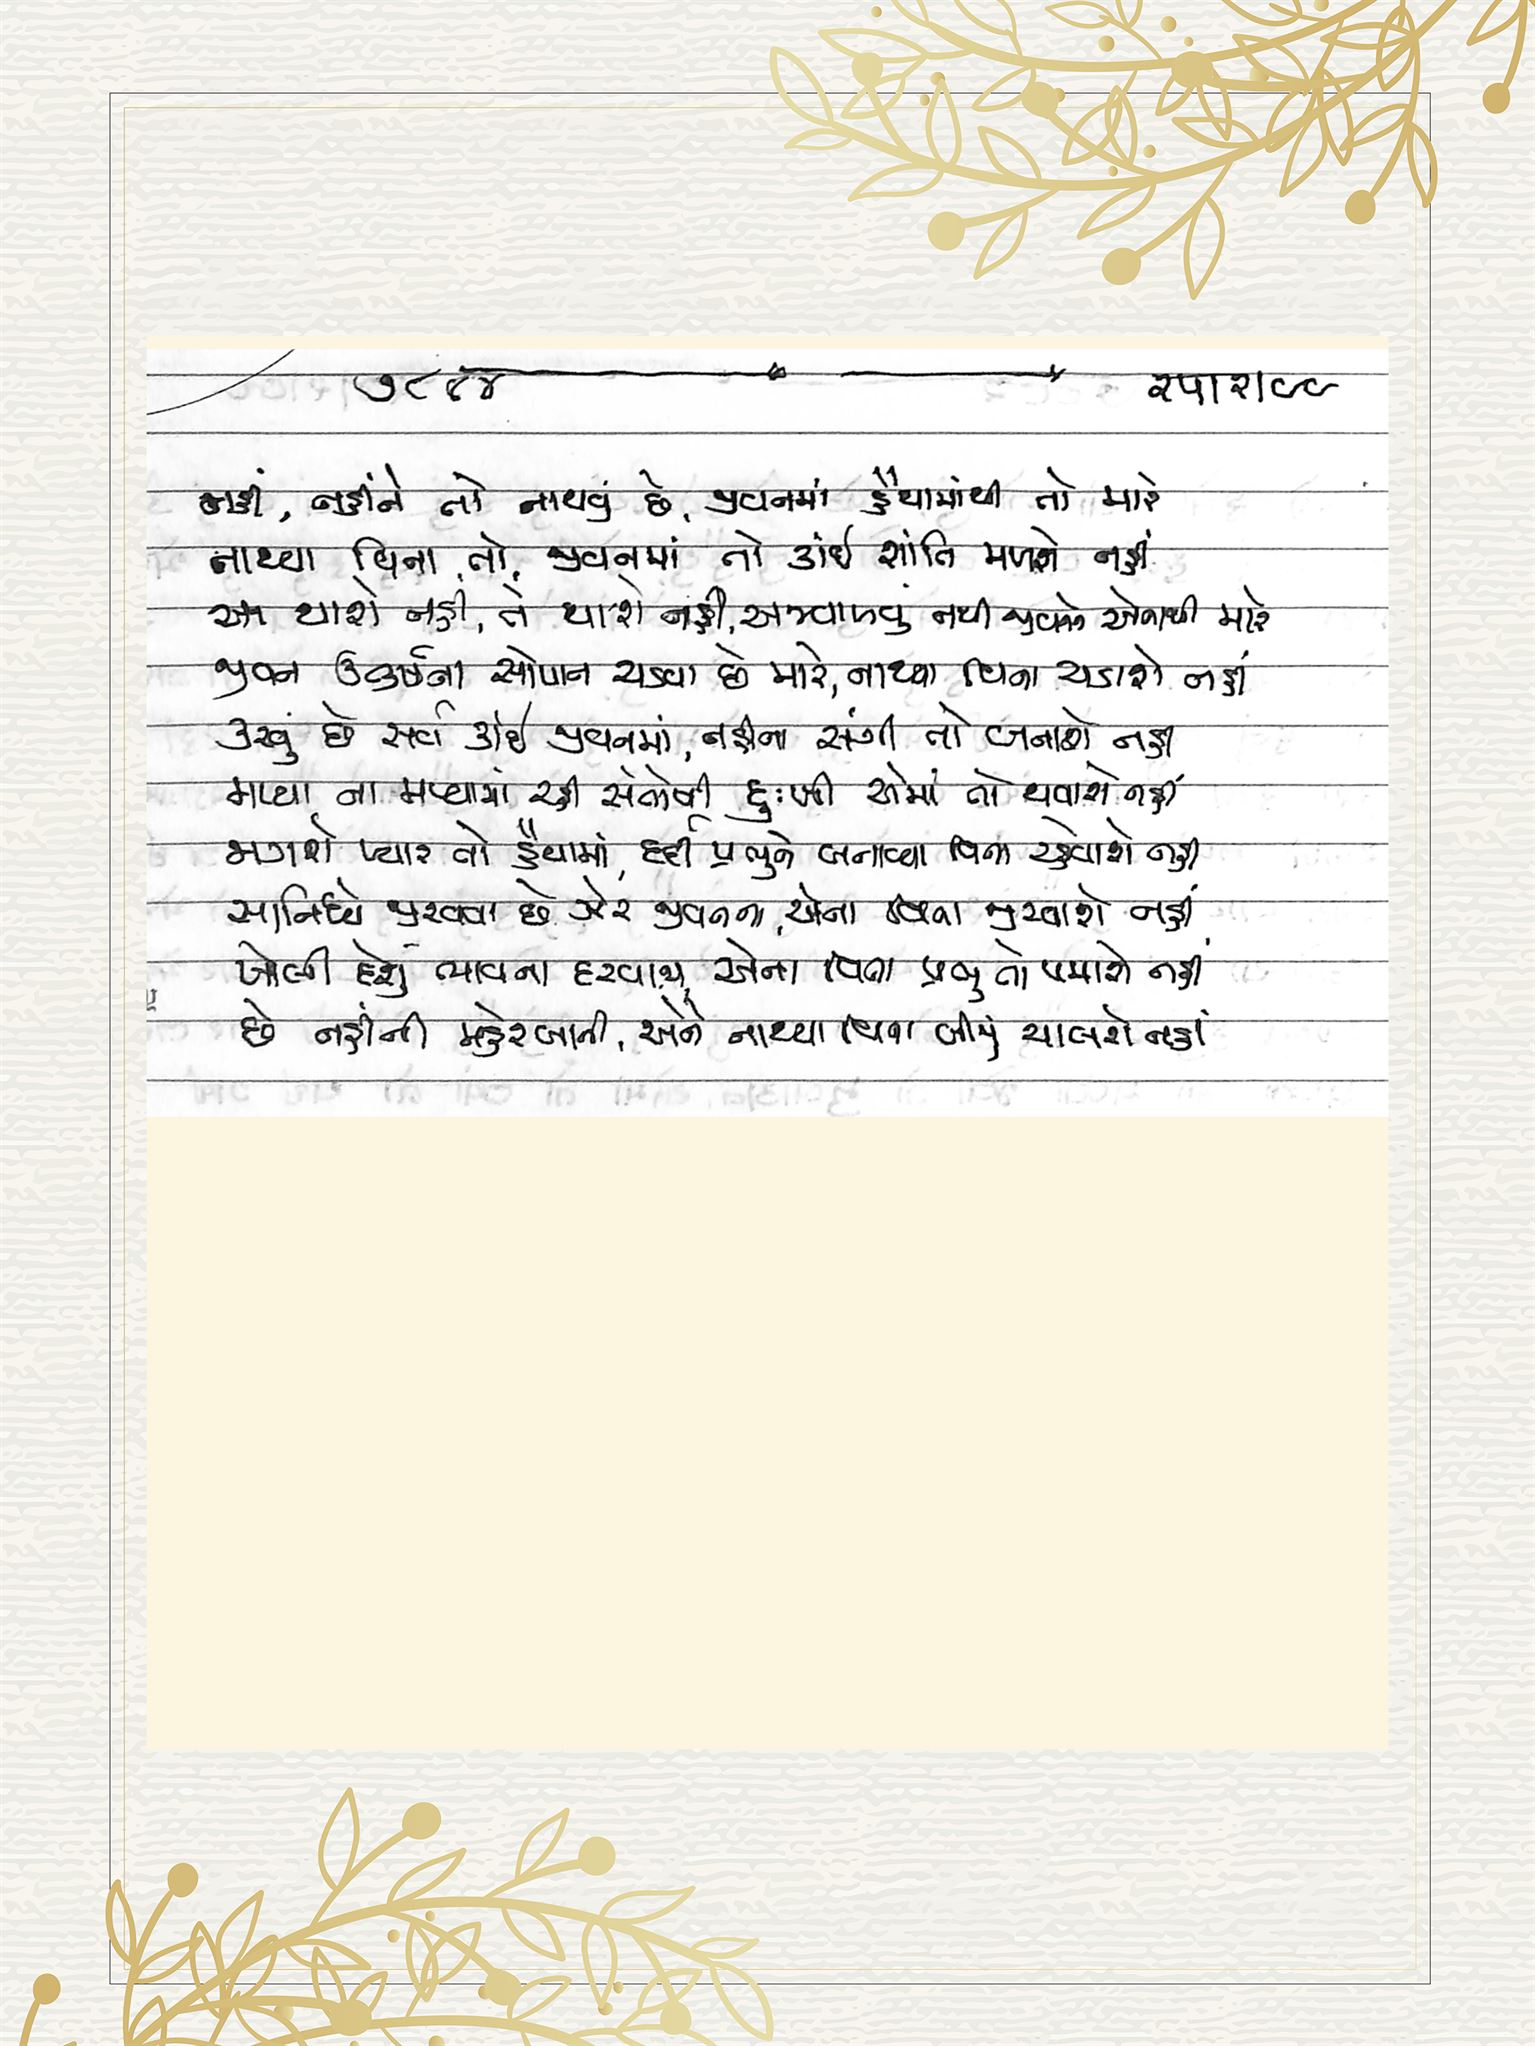 ૭૮૪૪ ૨૫।૨।૯૯
નહીં, નહીંને તો નાથવું છે, જીવનમાં હૈયામાંથી તો મારે
નાથ્યા વિના તો, જીવનમાં તો કાંઈ શાંતિ મળશે નહીં
આ થાશે નહીં, તે થાશે નહીં, અજવાળવું નથી જીવનને એનાથી મારે
જીવન ઉત્કર્ષના સોપાન ચડવા છે મારે, નાથ્યા વિના ચડાશે નહીં
કરવું છે સર્વ કાંઈ જીવનમાં, નહીંના સંગી તો બનાશે નહીં
મળ્યા ના મળ્યામાં રહી સંતોષી દુઃખી એમાં તો થવાશે નહીં
મળશે પ્યાર તો હૈયામાં, દર્દી પ્રભુને બનાવ્યા વિના રહેવાશે નહીં
સાંનિધ્યે જીરવવા છે ઝેર જીવનના, એના વિના જીરવાશે નહીં
ખોલી દેશું ભાવના દરવાજા, એના વિના પ્રભુ તો પમાશે નહીં
છે નહીંની મહેરબાની, એને નાથ્યા વિના બીજું ચાલશે નહીં